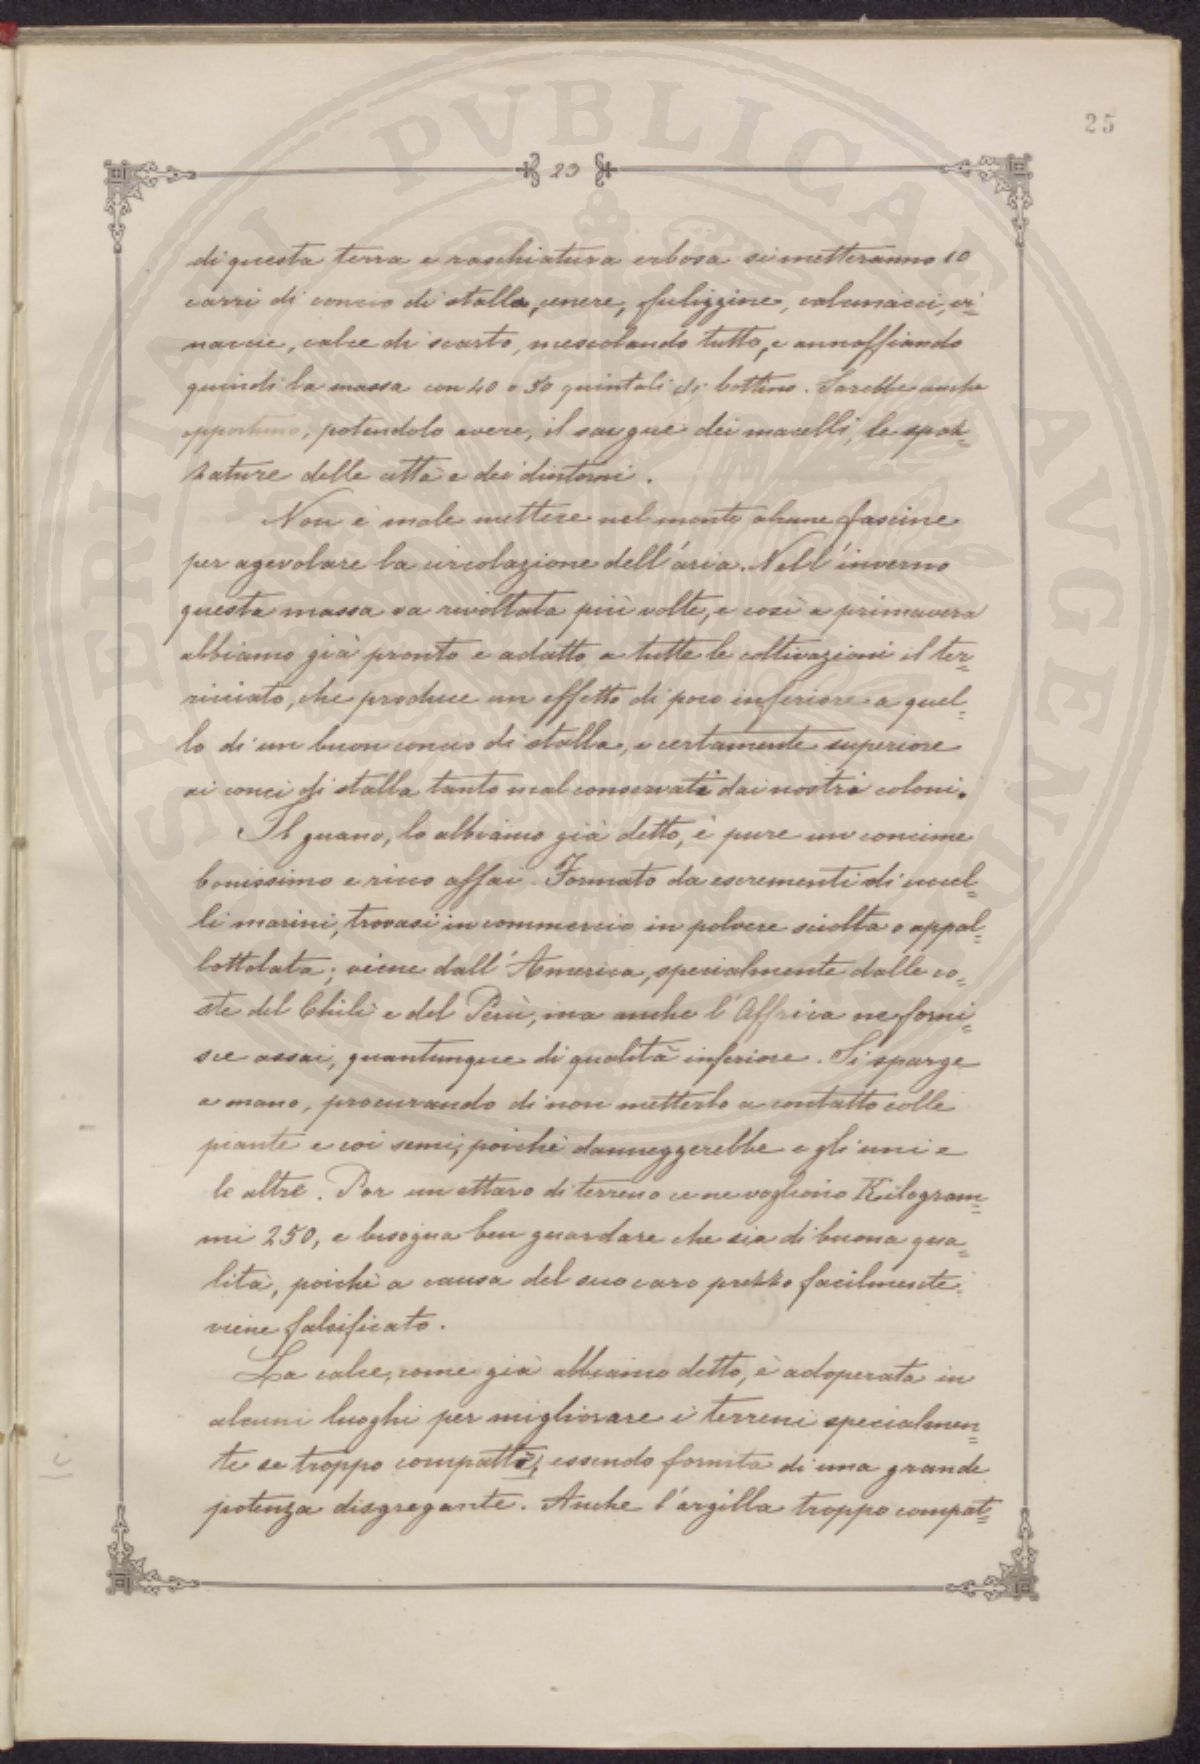 25
23
di questa terra e raschiatura erbosa si metteranno 10
carri di concio di stalla, cenere, fuliggine, calcinacci, vi=
naccie, calce di scarto, mescolando tutto, e annaffiando
quindi la massa con 40 o 50 quintali di bottino. Sarebbe anche
opportuno, potendolo avere, il sangue dei macelli, le spaz=
zature delle città e dei dintorni.
Non è male mettere nel monte alcune fascine
per agevolare la circolazione dell'aria. Nell'inverno
questa massa va rivoltata più volte, e così a primavera
abbiamo già pronto e adatto a tutte le coltivazioni il ter=
ricciato, che produce un effetto di poco inferiore a quel=
lo di un buon concio di stalla, e certamente superiore
ai conci di stalla tanto mal conservati dai nostri coloni.
Il guano, lo abbiamo già detto, è pure un concime
bonissimo e ricco assai. Formato da escrementi di uccel=
li marini, trovasi in commercio in polvere sciolta o appal=
lottolata; viene dall'America, specialmente dalle co=
ste del Chilì e del Perù, ma anche l'Affrica ne forni=
sce assai, quantunque di qualità inferiore. Si sparge
a mano, procurando di non metterlo a contatto colle
piante e coi semi, poichè danneggerebbe e gli uni e
le altre. Per un ettaro di terreno ce ne vogliono Kilogram=
mi 250, e bisogna ben guardare che sia di buona qua=
lità, poichè a causa del suo caro prezzo facilmente
viene falsificato.
La calce, come già abbiamo detto, è adoperata in
alcuni luoghi per migliorare i terreni specialmen=
te se troppo compatti, essendo fornita di una grande
potenza disgregante. Anche l'argilla troppo compat=